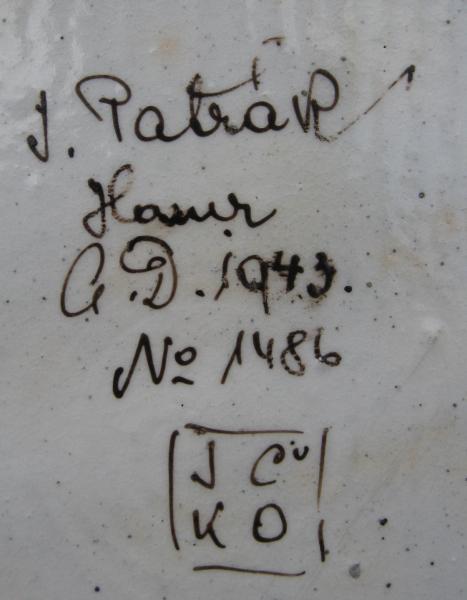 J. Patrák
A.D. 1943.
No 1486
J C
K O